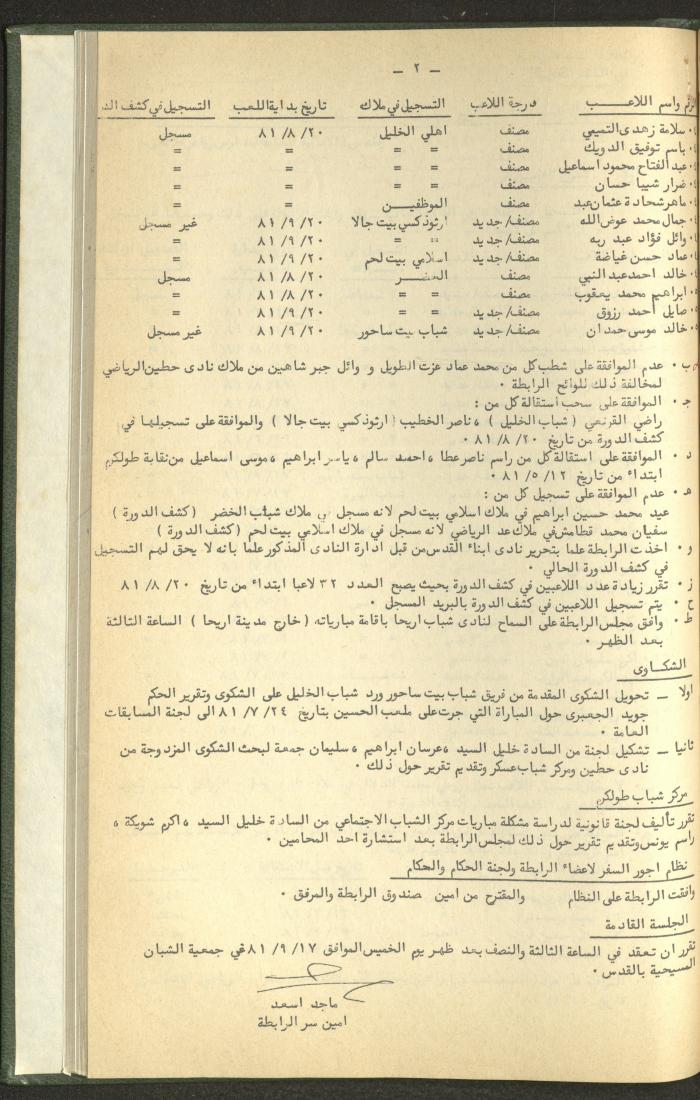 — ٢ —
الرقم واسم اللاعب درجة اللاعب التسجيل في ملاك تاريخ بداية اللعب التسجيل في كشف
سلامة زهدى التميمي مصنف اهلي الخليل ٨١/٨/٢٠ مسجل
باسم توفيق الدويك مصنف = = = =
عبد الفتاح محمود اسماعيل مصنف = = = =
ضرار شيبا حسان مصنف = = = =
ماهر شحادة عثمان عبد مصنف الموظفين = =
جمال محمد عوض الله مصنف/جديد ارثوذكسي بيت جالا ٨١/٩/٢٠ غير مسجل
وائل فؤاد عبد ربه مصنف/جديد = = ٨١/٩/٢٠ =
عماد حسن غياضة مصنف/جديد اسلامي بيت لحم ٨١/٩/٢٠ =
خالد احمد عبد النبي مصنف الخضر ٨١/٨/٢٠ مسجل
ابراهيم محمد يعقوب مصنف = = ٨١/٨/٢٠ =
صايل احمد رزوق مصنف/جديد = = ٨١/٩/٢٠ =
خالد موسى حمدان مصنف/جديد شباب بيت ساحور ٨١/٩/٢٠ غير مسجل
ب · عدم الموافقة على شطب كل من محمد عماد عزت الطويل و وائل جبر شاهين من ملاك نادى حطين الرياضي
لمخالفة ذلك للوائح الرابطة ·
جـ · الموافقة على سحب استقالة كل من :
راضي القرنعي ( شباب الخليل ) ، ناصر الخطيب ( ارثوذكسي بيت جالا ) والموافقة على تسجيلها في
كشف الدورة من تاريخ ٨١/٨/٢٠ ·
د · الموافقة على استقالة كل من راسم ناصر عطا ، احمد سالم ، ياسر ابراهيم ، موسى اسماعيل من نقابة طولكرم
ابتداء من تاريخ ٨١/٥/١٢ ·
هـ · عدم الموافقة على تسجيل كل من :
عيد محمد حسين ابراهيم في ملاك اسلامي بيت لحم لانه مسجل في ملاك شباب الخضر ( كشف الدورة )
سفيان محمد قطامش في ملاك عد الرياضي لانه مسجل في ملاك اسلامي بيت لحم ( كشف الدورة )
و · اخذت الرابطة علما بتحرير نادى ابناء القدس من قبل ادارة النادى المذكور علما بانه لا يحق لهم التسجيل
في كشف الدورة الحالي ·
ز · تقرر زيادة عدد اللاعبين في كشف الدورة بحيث يصبح العدد ٣٢ لاعبا ابتداء من تاريخ ٨١/٨/٢٠
ح · يتم تسجيل اللاعبين في كشف الدورة بالبريد المسجل ·
ط · وافق مجلس الرابطة على السماح لنادى شباب اريحا باقامة مبارياته ( خارج مدينة اريحا ) الساعة الثالثة
بعد الظهر ·
الشكاوى
اولا — تحويل الشكوى المقدمة من فريق شباب بيت ساحور ورد شباب الخليل على الشكوى وتقرير الحكم
جويد الجعبرى حول المباراة التي جرت على ملعب الحسين بتاريخ ٨١/٧/٢٤ الى لجنة المسابقات
العامة ·
ثانيا — تشكيل لجنة من السادة خليل السيد ، عرسان ابراهيم ، سليمان جمعة لبحث الشكوى المزدوجة من
نادى حطين ومركز شباب عسكر وتقديم تقرير حول ذلك ·
مركز شباب طولكرم
تقرر تأليف لجنة قانونية لدراسة مشكلة مباريات مركز الشباب الاجتماعي من السادة خليل السيد ، اكرم شويكة ،
راسم يونس وتقديم تقرير حول ذلك لمجلس الرابطة بعد استشارة احد المحامين ·
نظام اجور السفر لاعضاء الرابطة ولجنة الحكام والحكام
وافقت الرابطة على النظام والمقترح من امين صندوق الرابطة والمرفق ·
الجلسة القادمة
تقرر ان تعقد في الساعة الثالثة والنصف بعد ظهر يوم الخميس الموافق ٨١/٩/١٧ في جمعية الشبان
المسيحية بالقدس ·
ماجد اسعد
امين سر الرابطة